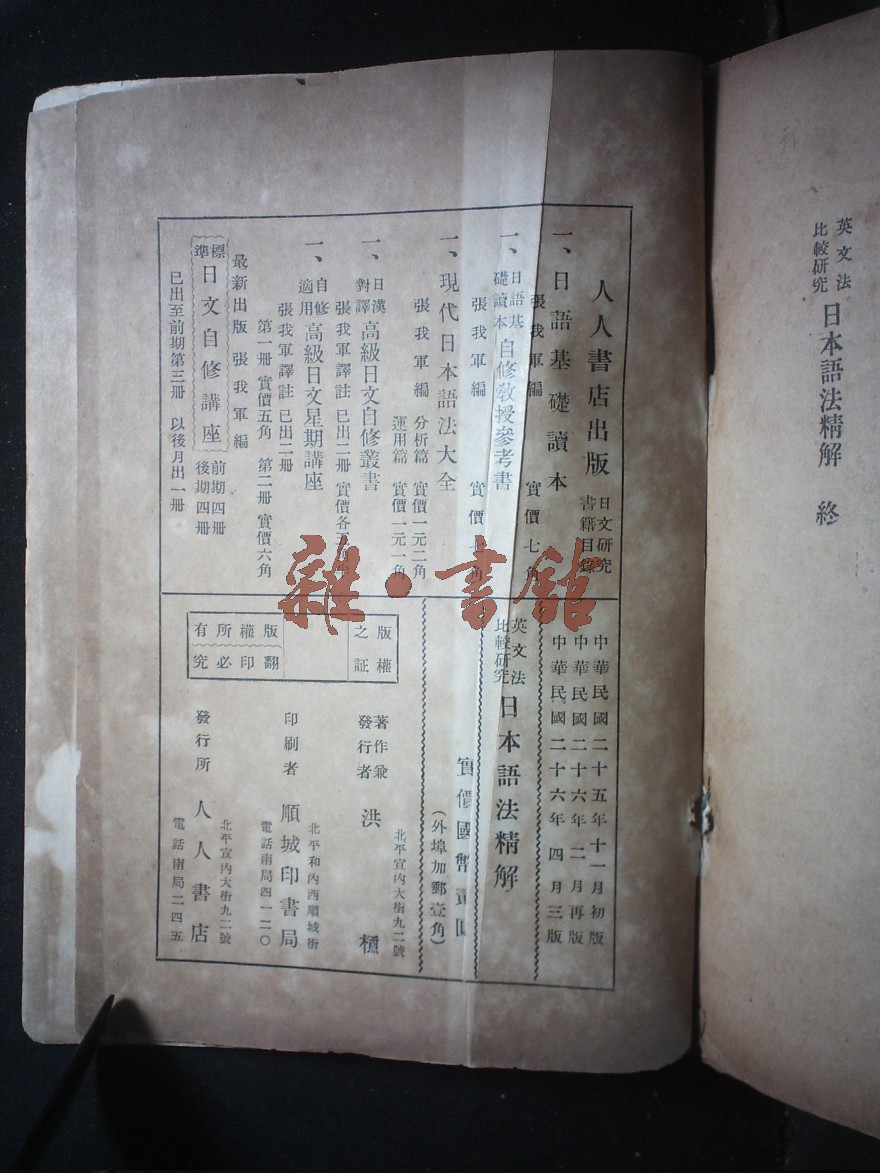 英文法
比較研究 日本語法精解 終
人人書店出版 日文研究
書籍目錄
一、日語基礎讀本
張我軍編 實價七角
一、日語基
礎讀本 自修教授參考書
張我軍編 實價七角
一、現代日本語法大全
張我軍編 分析篇 實價一元二角
運用篇 實價一元一角
一、日漢
對譯 高級日文自修叢書
張我軍譯註 已出二冊 實價各
一、自修
適用 高級日文星期講座
張我軍譯註 已出二冊
第一冊 實價五角 第二冊 實價六角
最新出版 張我軍編
標準 日文自修講座 前期四冊
後期四冊
已出至前期第三冊 以後月出一冊
中華民國二十五年十一月初版
中華民國二十六年二月再版
中華民國二十六年四月三版
英文法
比較研究 日本語法精解
實價國幣壹圓
(外埠加郵壹角)
版權
之証
版權所有
翻印必究
北平宣內大街九二號
著作兼
發行者 洪櫃
北平和內西順城街
印刷者 順城印書局
電話南局四一二〇
北平宣內大街九二號
發行所 人人書店
電話南局二四五
雜·書館